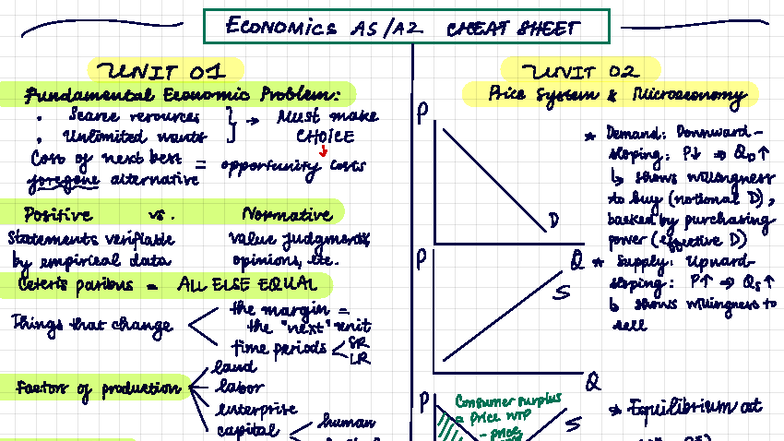 ECONOMICS AS/A2 CHEAT SHEET
UNIT 01
Fundamental Economic Problem:
• Scarce resources
• Unlimited wants
→ Must make
CHOICE
Cost of next best
foregone alternative
= opportunity costs
Positive vs. Normative
Statements verifiable
by empirical data
value judgments,
opinions, etc.
Ceteris paribus = ALL ELSE EQUAL
Things that change
the margin =
the "next" unit
time periods
SR
LR
Factors of production
land
labor
enterprise
capital
human
UNIT 02
Price System & Microeconomy
P
D
Q
* Demand: Downward-
sloping: P↓ ⇒ QD↑
↳ shows willingness
to buy (notional D),
backed by purchasing
power (effective D)
P
S
Q
* Supply: Upward-
sloping: P↑ ⇒ QS↑
↳ shows willingness to
sell
P
Consumer surplus
= Price WTP
- price
S
* Equilibrium at